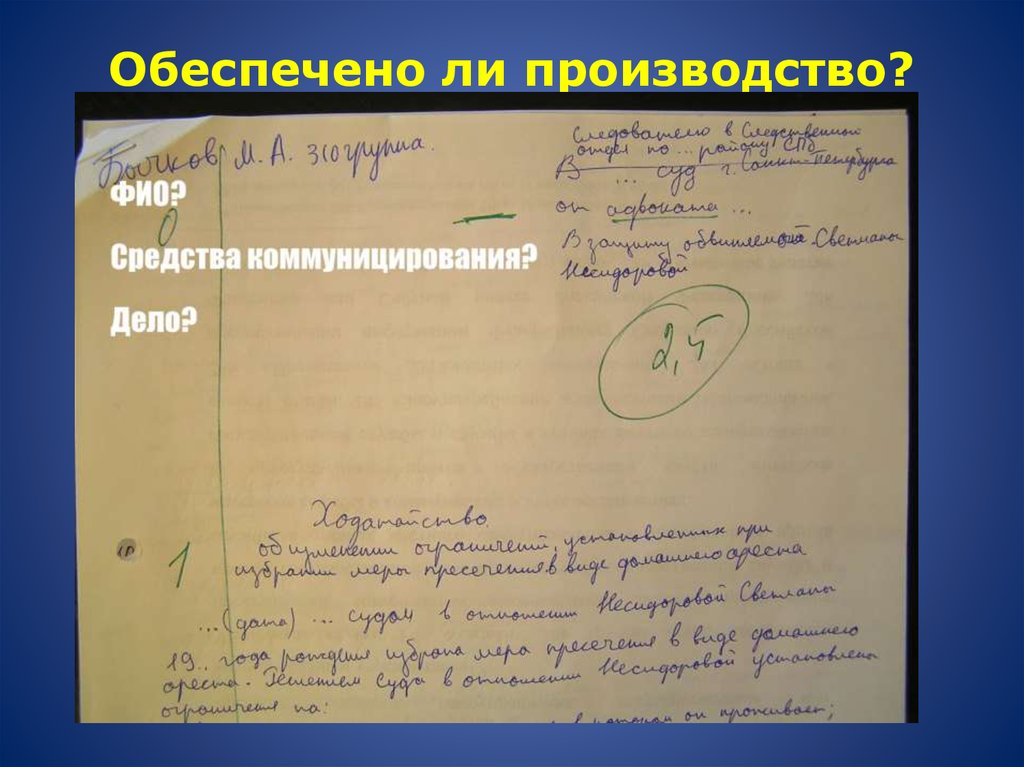 Обеспечено ли производство?
Бычков М. А. 310 группа.
Следователю в Следственный
отдел по ... району СПб
В ... суд г. Санкт-Петербурга
от адвоката ...
В защиту обвиняемой Светланы
Несидоровой
ФИО?
0
Средства коммуницирования?
Дело?
2,5
Ходатайство
1
об изменении ограничений, установленных при
избрании меры пресечения в виде домашнего ареста
...(дата) ... судом в отношении Несидоровой Светланы
19.. года рождения избрана мера пресечения в виде домашнего
ареста. Решением суда в отношении Несидоровой установлены
ограничения на:
в котором он проживает;